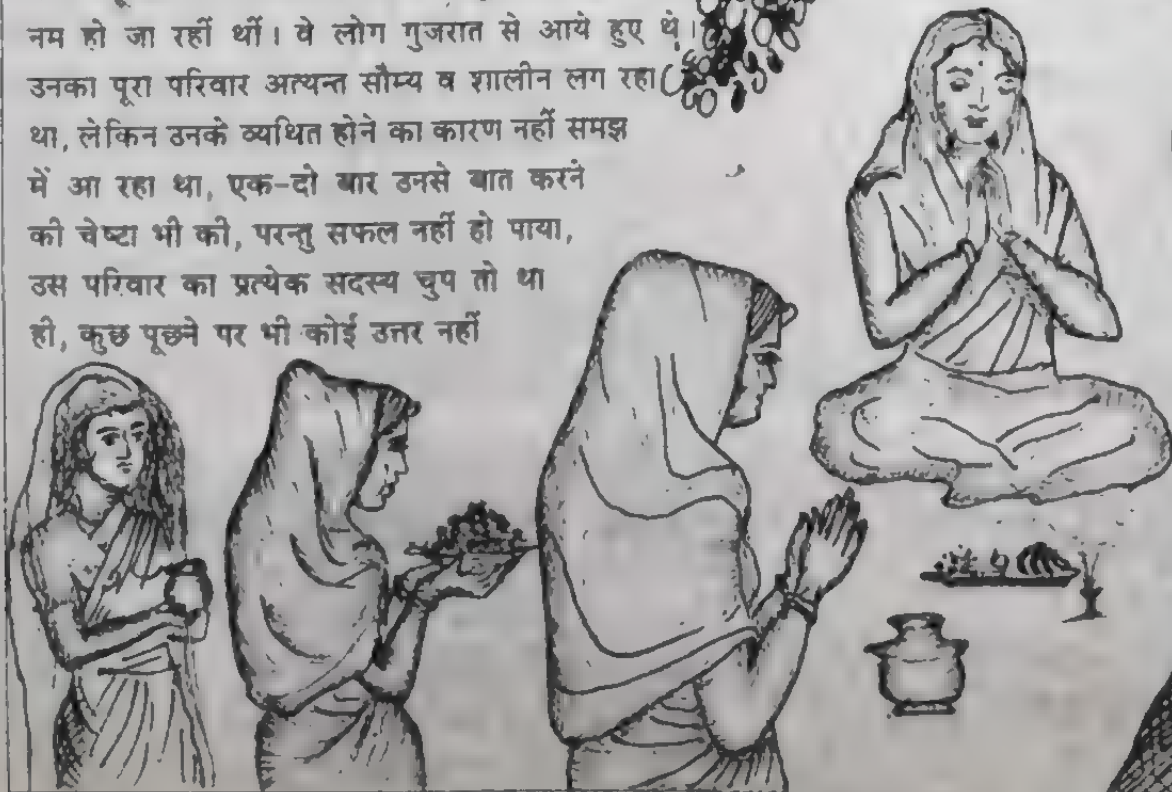 नम हो जा रहीं थीं। वे लोग गुजरात से आये हुए थे।
उनका पूरा परिवार अत्यन्त सौम्य व शालीन लग रहा
था, लेकिन उनके व्यथित होने का कारण नहीं समझ
में आ रहा था, एक-दो बार उनसे बात करने
की चेष्टा भी की, परन्तु सफल नहीं हो पाया,
उस परिवार का प्रत्येक सदस्य चुप तो था
ही, कुछ पूछने पर भी कोई उत्तर नहीं